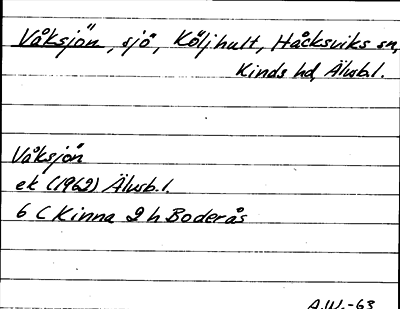 Våksjön, sjö, Köljhult, Håcksviks sn,
Kinds hd, Älvsb.l.
Våksjön
ek (1962) Älvsb.l.
6 C Kinna 2 h Boderås
A.W.-63